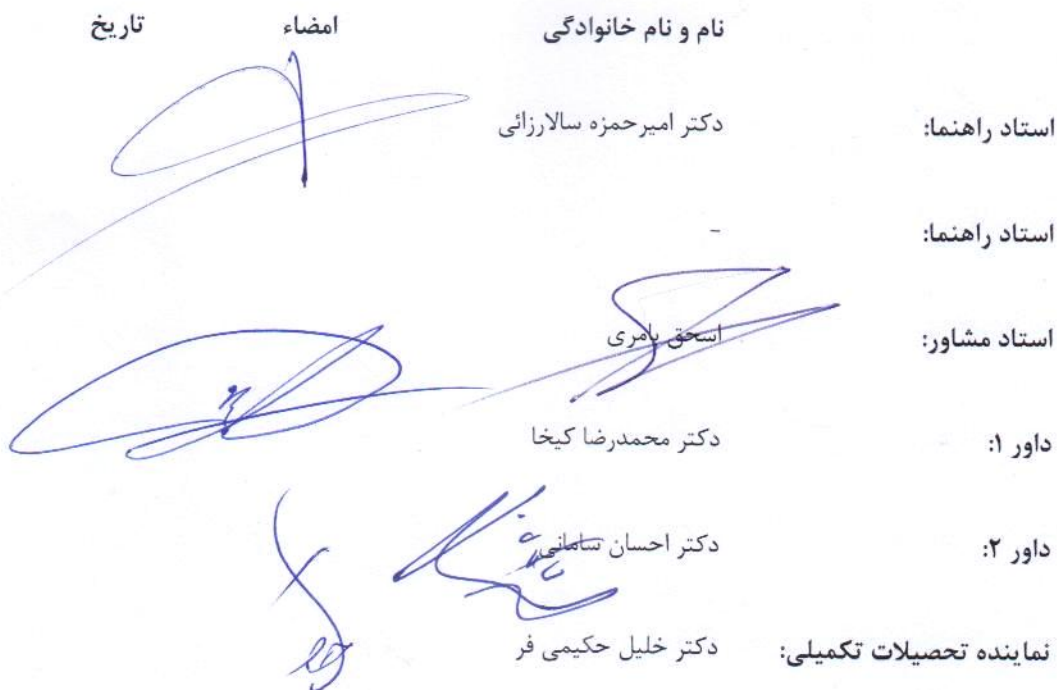 نام و نام خانوادگی امضاء تاریخ
استاد راهنما: دکتر امیرحمزه سالارزائی
استاد راهنما: -
استاد مشاور: اسحق بامری
داور ۱: دکتر محمدرضا کیخا
داور ۲: دکتر احسان سامانی
نماینده تحصیلات تکمیلی: دکتر خلیل حکیمی فر